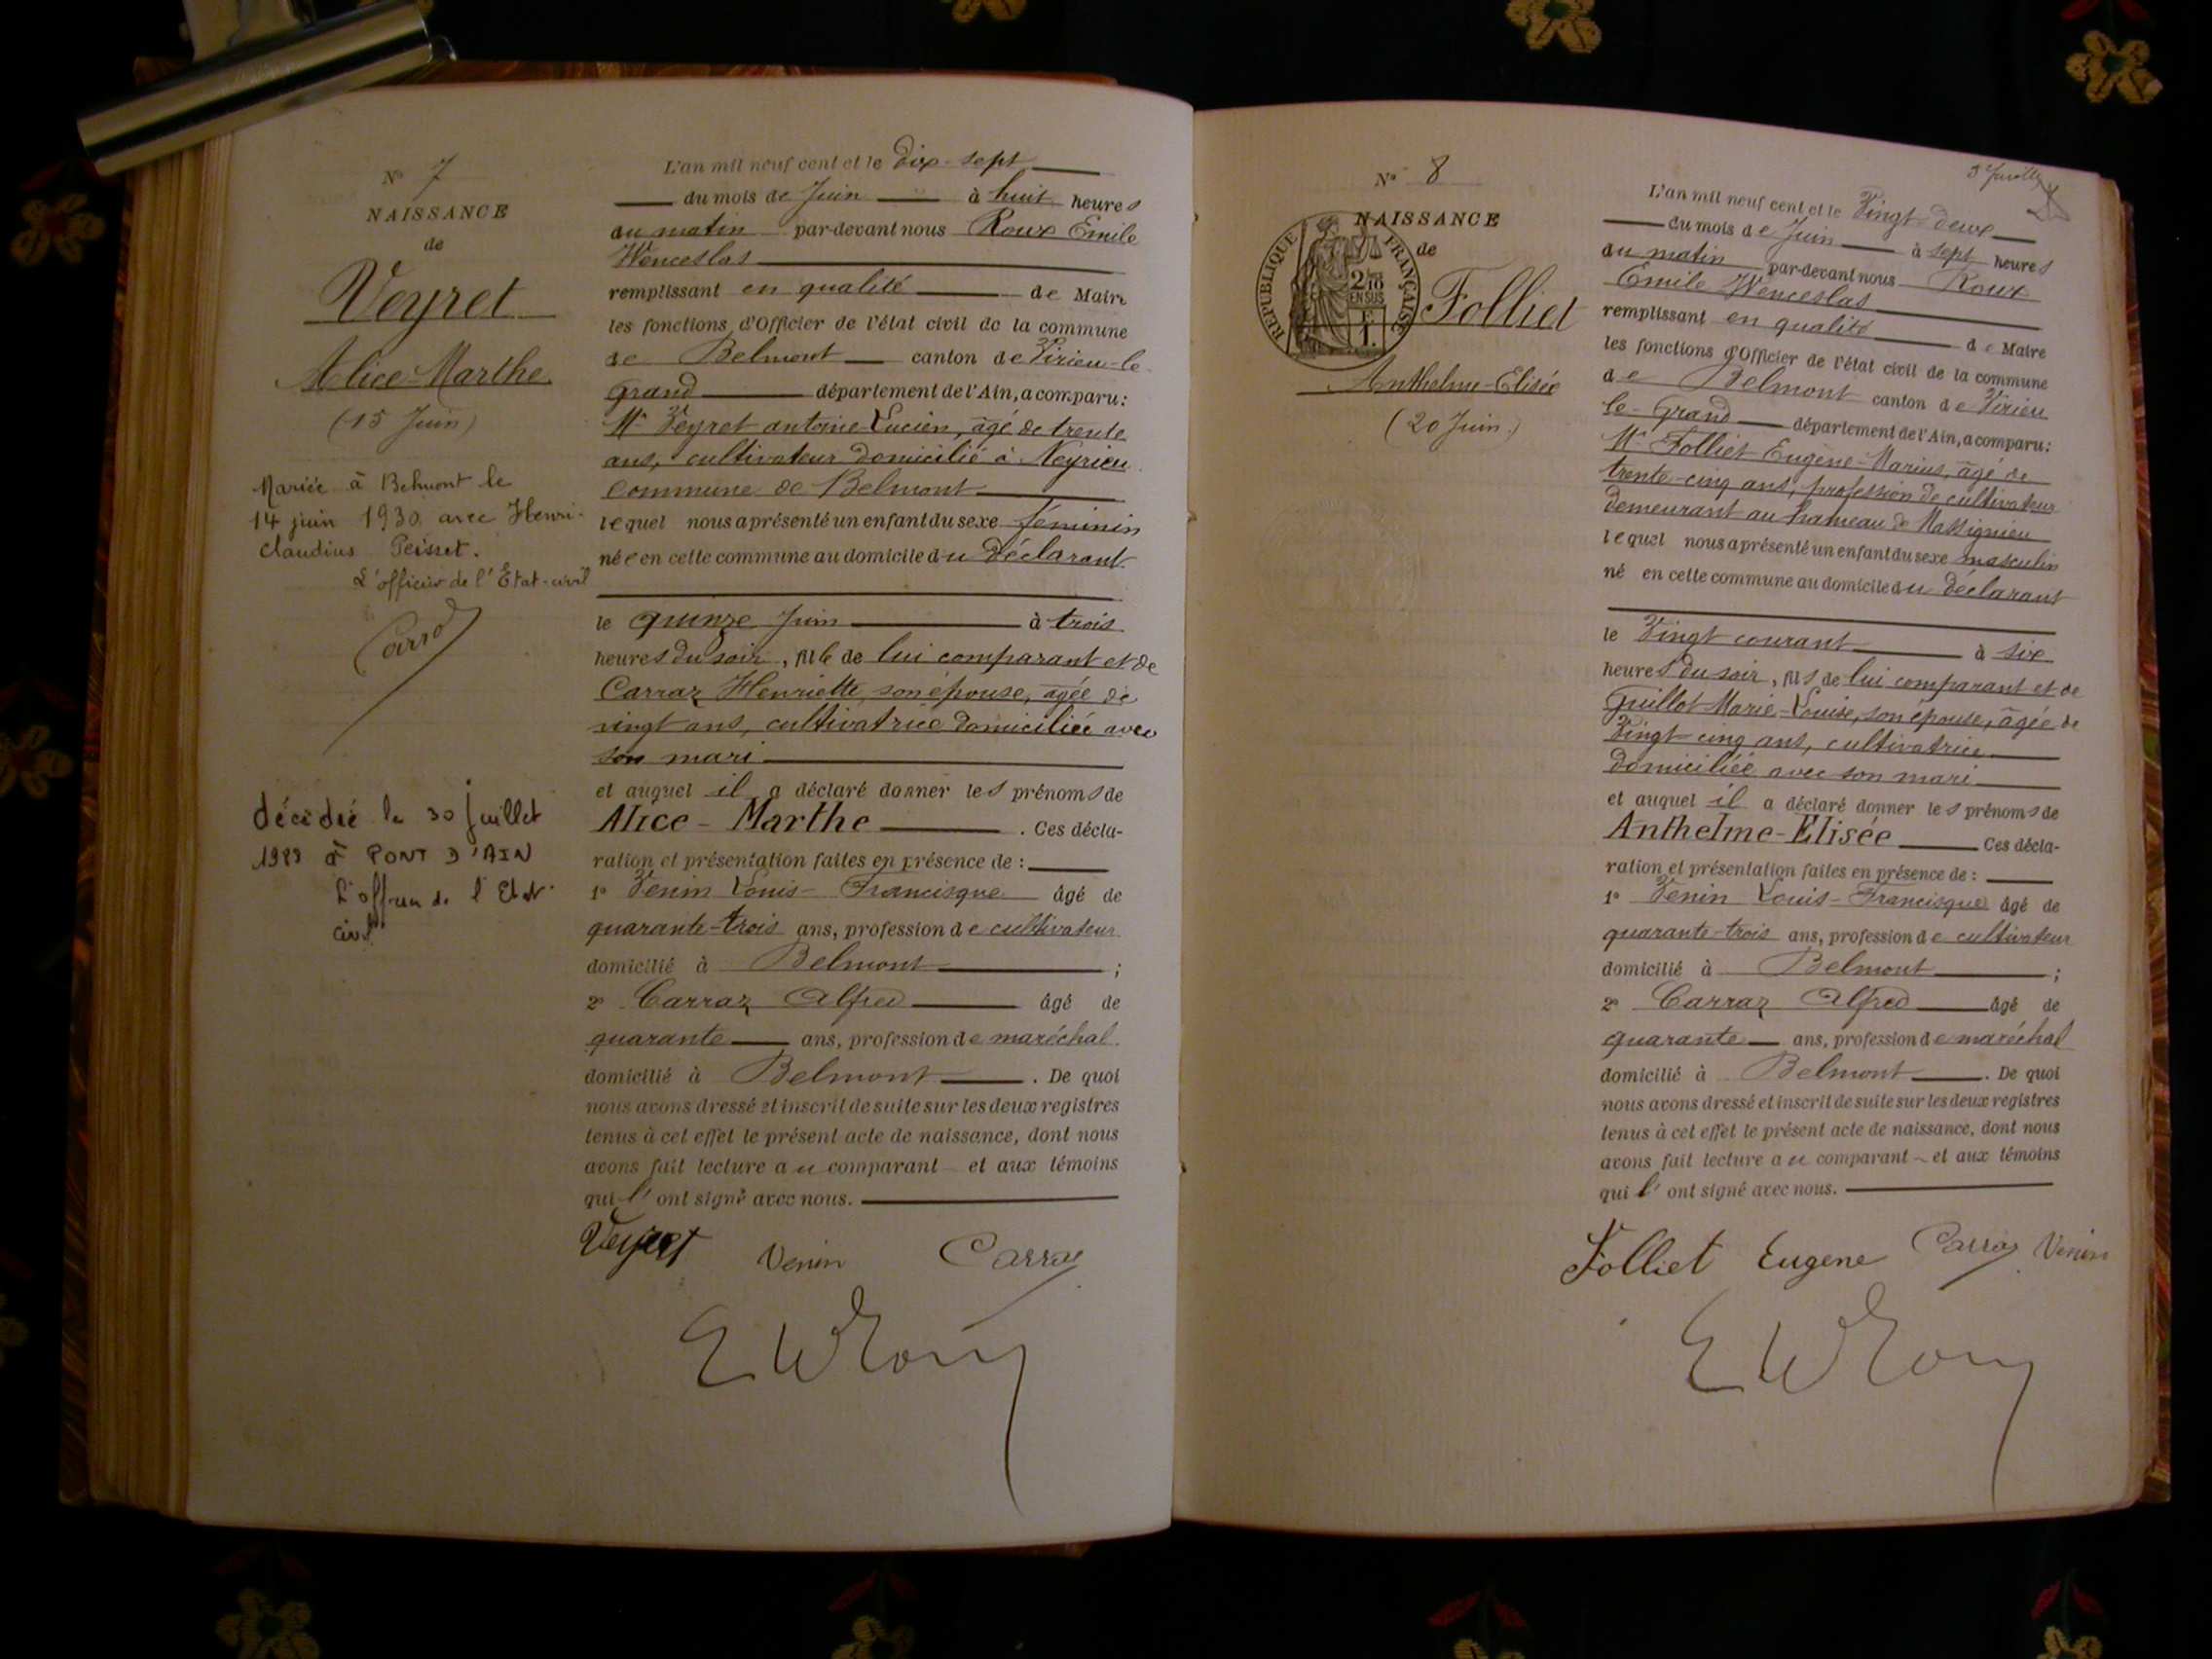 N° 7
NAISSANCE
de
Veyret
Alice-Marthe
(15 Juin)
Mariée à Belmont le
14 juin 1930 avec Henri-
Claudius Peisset.
L'officier de l'État-civil
décédée le 30 juillet
à PONT D'AIN
L'officier de l'Etat
civil
L'an mil neuf cent et le dix-sept
du mois de Juin à huit heures
du matin par-devant nous Roux Emile
Wenceslas
remplissant en qualité de Maire
les fonctions d'Officier de l'état civil de la commune
de Belmont canton de Virieu-le-
grand département de l'Ain, a comparu:
Mr Veyret antoine-Lucien, âgé de trente
ans, cultivateur domicilié à Neyrieu
commune de Belmont
lequel nous a présenté un enfant du sexe féminin
née en cette commune au domicile du déclarant
le quinze Juin à trois
heures du soir, fille de lui comparant et de
Carraz Henriette son épouse, âgée de
vingt ans, cultivatrice domiciliée avec
son mari
et auquel il a déclaré donner les prénoms de
Alice-Marthe . Ces décla-
ration et présentation faites en présence de :
1° Venin Louis-Francisque âgé de
quarante-trois ans, profession de cultivateur
domicilié à Belmont ;
2° Carraz Alfred âgé de
quarante ans, profession de maréchal
domicilié à Belmont . De quoi
nous avons dressé et inscrit de suite sur les deux registres
tenus à cet effet le présent acte de naissance, dont nous
avons fait lecture au comparant et aux témoins
qui l'ont signé avec nous.
Veyret Venin Carraz
E W Roux
N° 8
NAISSANCE
de
RÉPUBLIQUE FRANÇAISE
2/10
EN SUS
F
1.
Folliet
Anthelme-Elisée
(20 Juin.)
L'an mil neuf cent et le Vingt-deux
du mois de Juin à sept heures
du matin par-devant nous Roux
Emile Wenceslas
remplissant en qualité de Maire
les fonctions d'Officier de l'état civil de la commune
de Belmont canton de Virieu
le-Grand département de l'Ain, a comparu:
Mr Folliet Eugène-Marius, âgé de
trente-cinq ans, profession de cultivateur
demeurant au hameau de Massignieu
lequel nous a présenté un enfant du sexe masculin
né en cette commune au domicile du déclarant
le Vingt courant à six
heures du soir, fils de lui comparant et de
Guillot Marie-Louise, son épouse, âgée de
Vingt-cinq ans, cultivatrice
domiciliée avec son mari
et auquel il a déclaré donner les prénoms de
Anthelme-Elisée Ces décla-
ration et présentation faites en présence de :
1° Venin Louis-Francisque âgé de
quarante-trois ans, profession de cultivateur
domicilié à Belmont ;
2° Carraz Alfred âgé de
quarante ans, profession de maréchal
domicilié à Belmont . De quoi
nous avons dressé et inscrit de suite sur les deux registres
tenus à cet effet le présent acte de naissance, dont nous
avons fait lecture au comparant et aux témoins
qui l'ont signé avec nous.
Folliet Eugene Carraz Venin
E W Roux